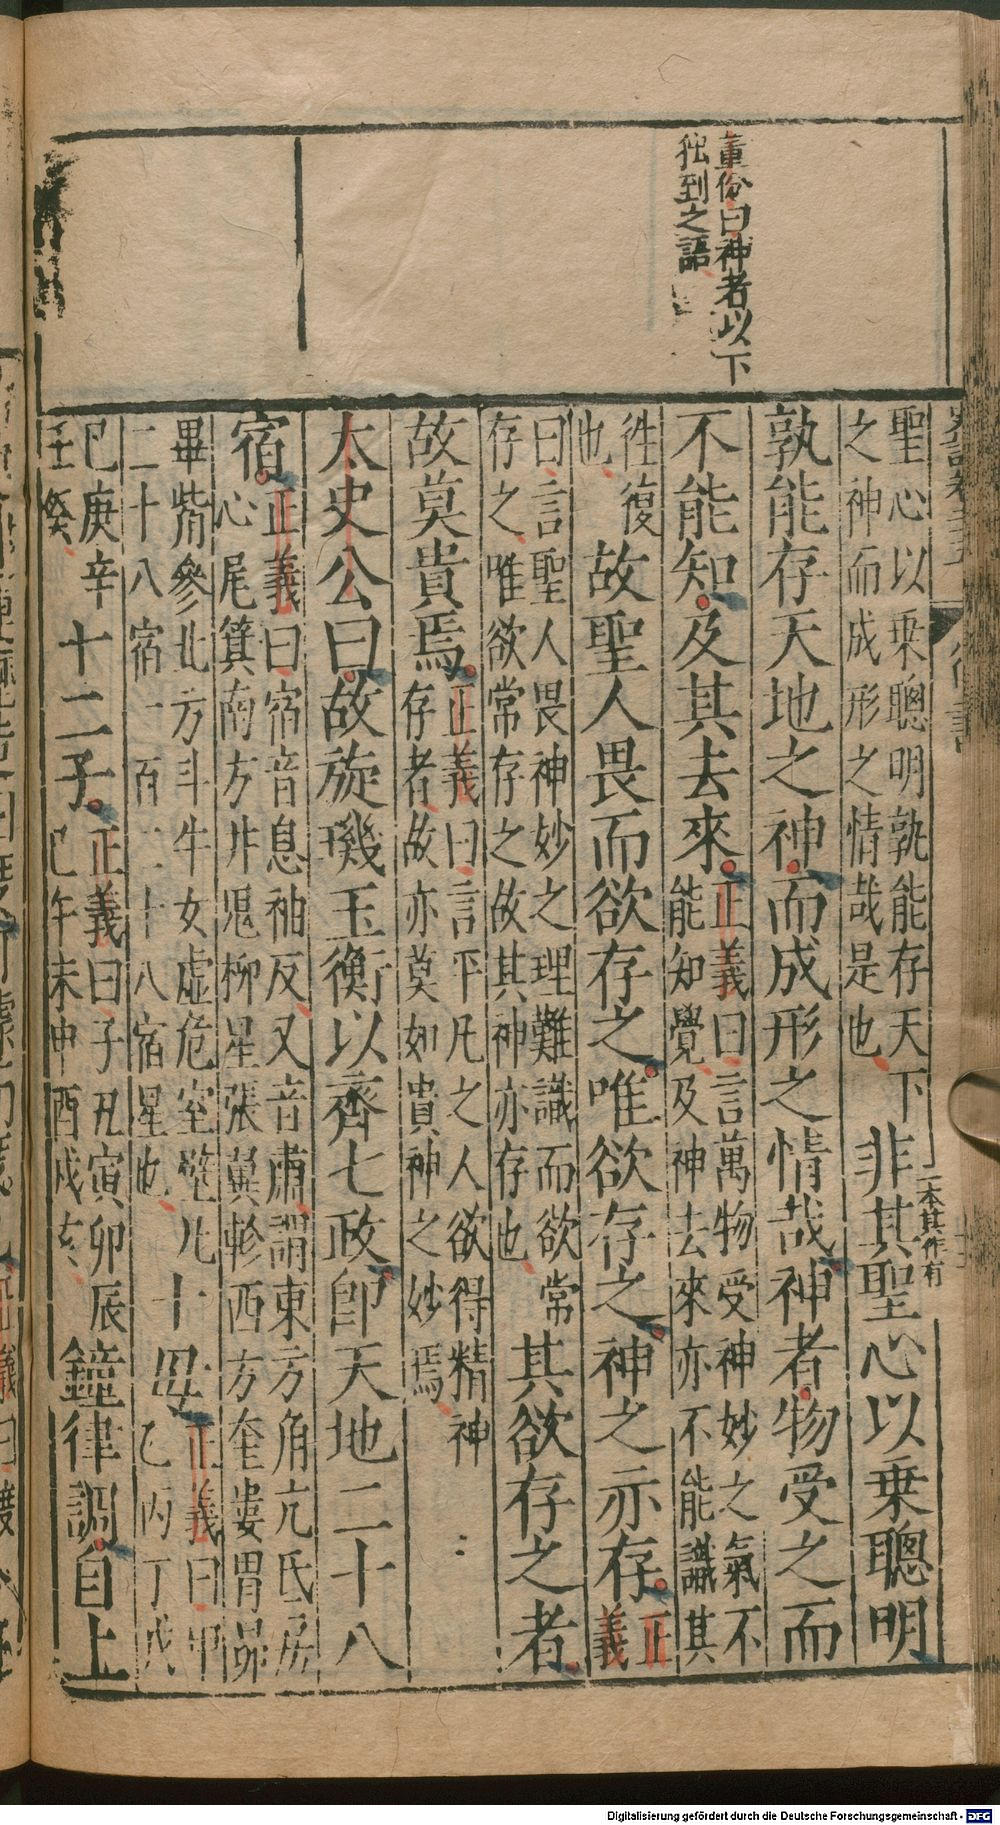 董份曰神者以下
独到之語
聖心以乗聰明孰能存天下
之神而成形之情哉是也
非其聖心以乗聰明
一本其作有
孰能存天地之神而成形之情哉神者物受之而
不能知及其去來
正義曰言萬物受神妙之氣不
能知覺及神去來亦不能識其
往復
也
故聖人畏而欲存之唯欲存之神之亦存
正
義
曰言聖人畏神妙之理難識而欲常
存之唯欲常存之故其神亦存也
其欲存之者
故莫貴焉
正義曰言平凡之人欲得精神
存者故亦莫如貴神之妙焉
太史公曰故旋璣玉衡以齊七政卽天地二十八
宿
正義曰宿音息袖反又音肅謂東方角亢氐房
心尾箕南方井鬼柳星張翼軫西方奎婁胃昴
畢觜參北方斗牛女虛危室壁凡
二十八宿一百二十八宿星也
十毋
正義曰甲
乙丙丁戊
己庚辛
壬癸
十二子
正義曰子丑寅卯辰
巳午未申酉戌亥
鐘律調自上
Digitalisierung gefördert durch die Deutsche Forschungsgemeinschaft - DFG